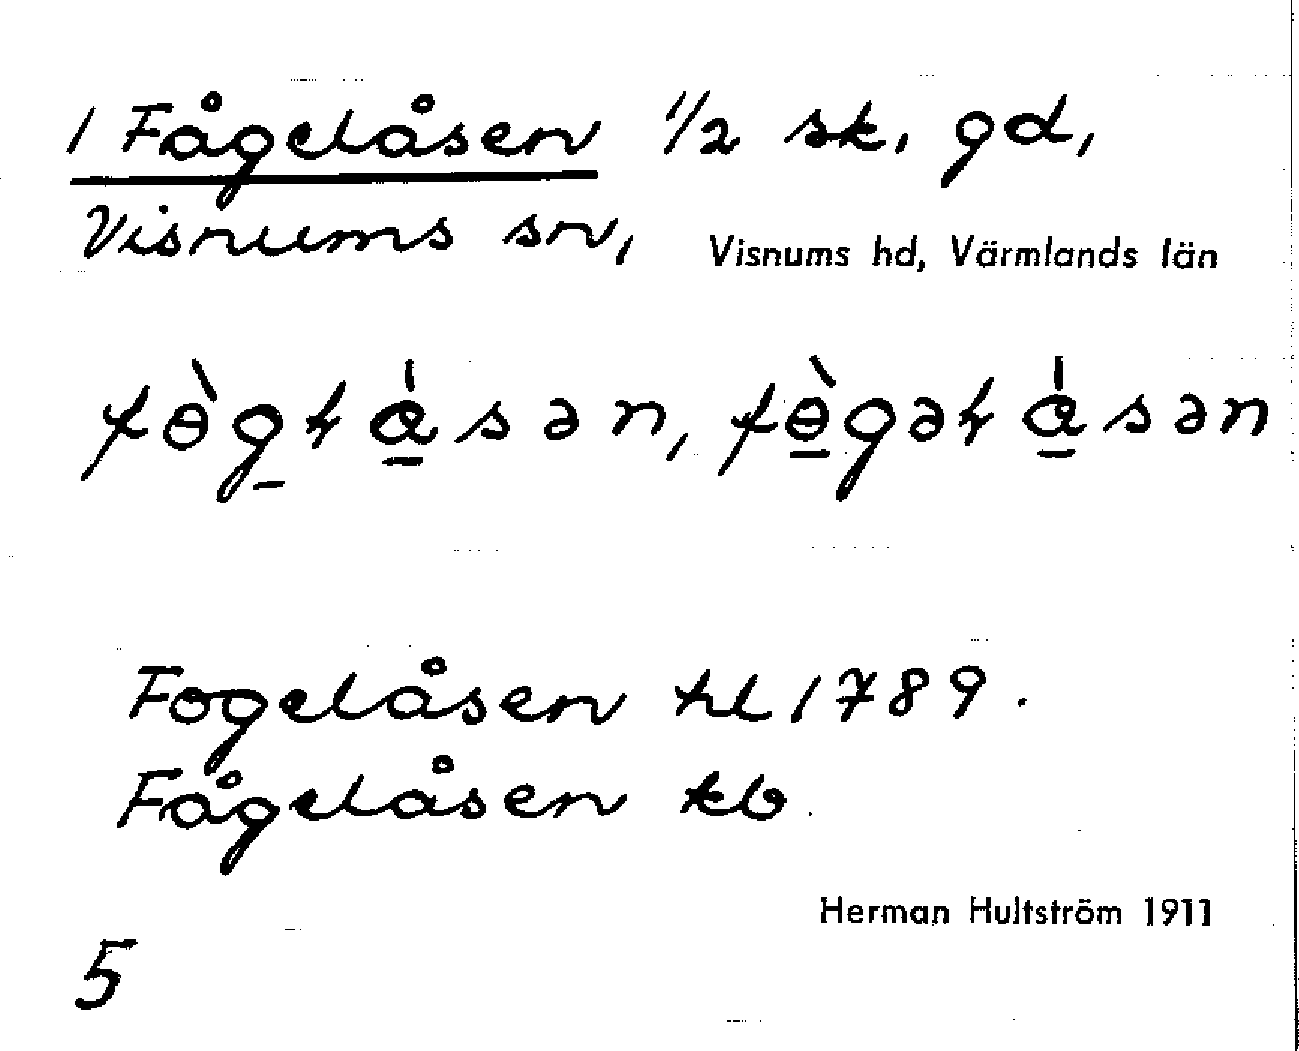 1 Fågelåsen 1/2 sk. gd,
Visnums sn, Visnums hd, Värmlands län
fɵ̀gɫa̱̍sən, fɵ̱̀gəɫa̱̍sən
Fogelåsen hl 1789.
Fågelåsen kb.
Herman Hultström 1911
5